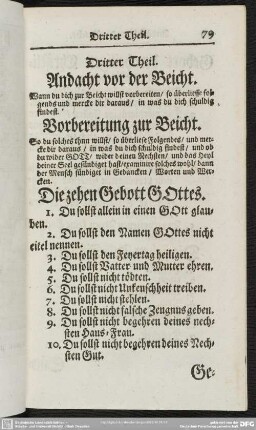 Dritter Theil. 79
Dritter Theil.
Andacht vor der Beicht.
Wann du dich zur Beicht willst vorbereiten / so überliesse fol-
gends und mercke dir daraus / in was du dich schuldig
findest.
Vorbereitung zur Beicht.
So du solches thun willst / so überliese Folgendes / und mer-
cke dir daraus / in was du dich schuldig findest / und ob
du wider GOTT / wider deinen Nechsten / und das Heyl
deiner Seel gesündiget hast / examinire solches wohl / dann
der Mensch sündiget in Gedancken / Worten und Wer-
cken.
Die zehen Gebott GOttes.
1. Du sollst allein in einen GOtt glau-
ben.
2. Du sollst den Namen GOttes nicht
eitel nennen.
3. Du sollst den Feyertag heiligen.
4. Du sollst Vatter und Mutter ehren.
5. Du sollst nicht tödten.
6. Du sollst nicht Unkeuschheit treiben.
7. Du sollst nicht stehlen.
8. Du sollst nicht falsche Zeugnus geben.
9. Du sollst nicht begehren deines nech-
sten Haus-Frau.
10. Du sollst nicht begehren deines Nech-
sten Gut.
Ge-